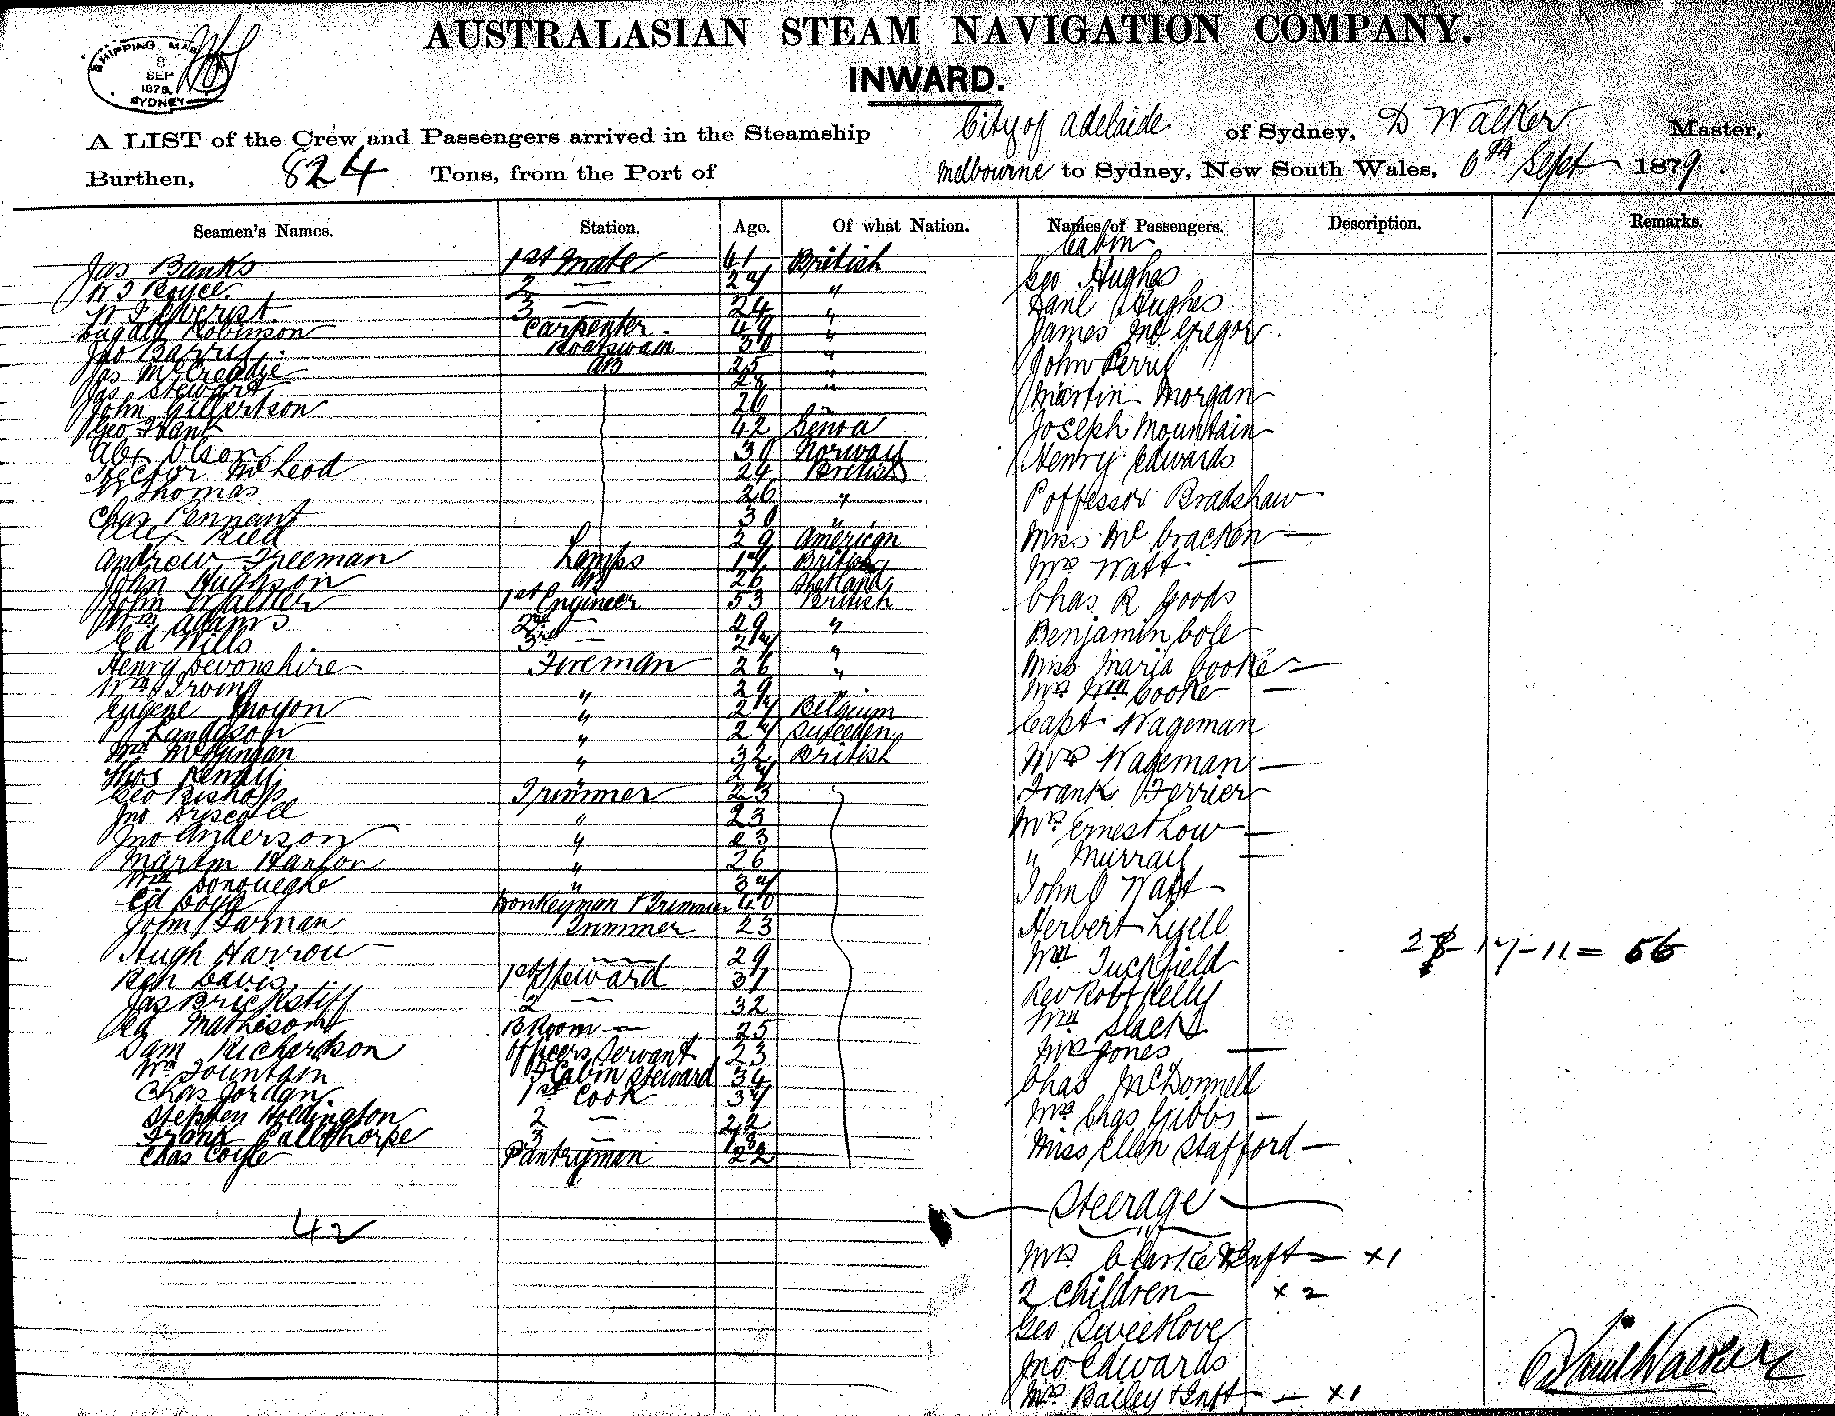 SHIPPING MAS
8
SEP
1879
SYDNEY
AUSTRALASIAN STEAM NAVIGATION COMPANY.
INWARD.
A LIST of the Crew and Passengers arrived in the Steamship City of Adelaide of Sydney, D Walker Master,
Burthen, 824 Tons, from the Port of Melbourne to Sydney, New South Wales, 6th Sept 1879.
Seamen's Names. Station. Age. Of what Nation. Names of Passengers. Description. Remarks.
Jas Banks 1st Mate 61 British
Boyce 2 — "
3 — 24 "
Robinson Carpenter 49 "
Jno Barry Boatswain 30 "
Jas McCreadie AB 25 "
Jas Stewart "
John Gillertson 26 "
Geo Frank 42 Genoa
Alex Olson 30 Norway
Hector McLeod 24 British
W Thomas 26 "
Chas Pennant 30 "
Alex Ried 29 American
Andrew Freeman Lamps 19 British
John Hughson AB 26 Shetland
John Walker 1st Engineer 53 British
Wm Adams 2nd — 29 "
Ed Wills 3rd — 27 "
Henry Devonshire Fireman 26 "
Wm Irving " 29 "
Eugene " 27 Belgium
" 27 Sweeden
Wm " 32 British
Thos Kenny " 27
Geo Bishop Trimmer 23
Jno Driscoll " 23
Jno Anderson " 23
Martin Hanlon " 26
Wm Donoueghe " 37
Ed Donkeyman & Trimmer 40
John Jarman Trimmer 23
Hugh Harrou — 29
Ben Davis 1st Steward 37
Jas Brickstiff 2 — 32
Rd Mathison B Room — 25
Sam Richardson Officers Servant 23
Wm Fountain F Cabin Steward 34
Chas Jordan 1st Cook 37
Stephen Holdington 2 —
Frank Pallthorpe 3 —
Chas Coyle Pantryman 22
42
Cabin
Geo Hughes
Danl Hughes
James McGregor
John Perry
Martin Morgan
Joseph Mountain
Henry Edwards
Poffessor Bradshaw
Miss McCracken —
Mrs Watt —
Chas R Goods
Benjamin Cole
Miss Maria Cooke —
Mrs Wm Cooke —
Capt Wageman
Mrs Wageman —
Frank Ferrier
Mrs Ernest Low —
" Murray —
John O Watt
Herbert Lyell
Wm Tuckfield
Rev Robt Kelly
Wm Slack
Mrs Jones —
Chas McDonnell
Mrs Chas Gibbs —
Miss Ellen Stafford —
28 - 17 - 11 = 56
Steerage
Mrs Clarke & Inft — x 1
2 Children x 2
Geo Sweetlove
Jno Edwards
Mrs Bailey & Inft — x 1
Danl Walker